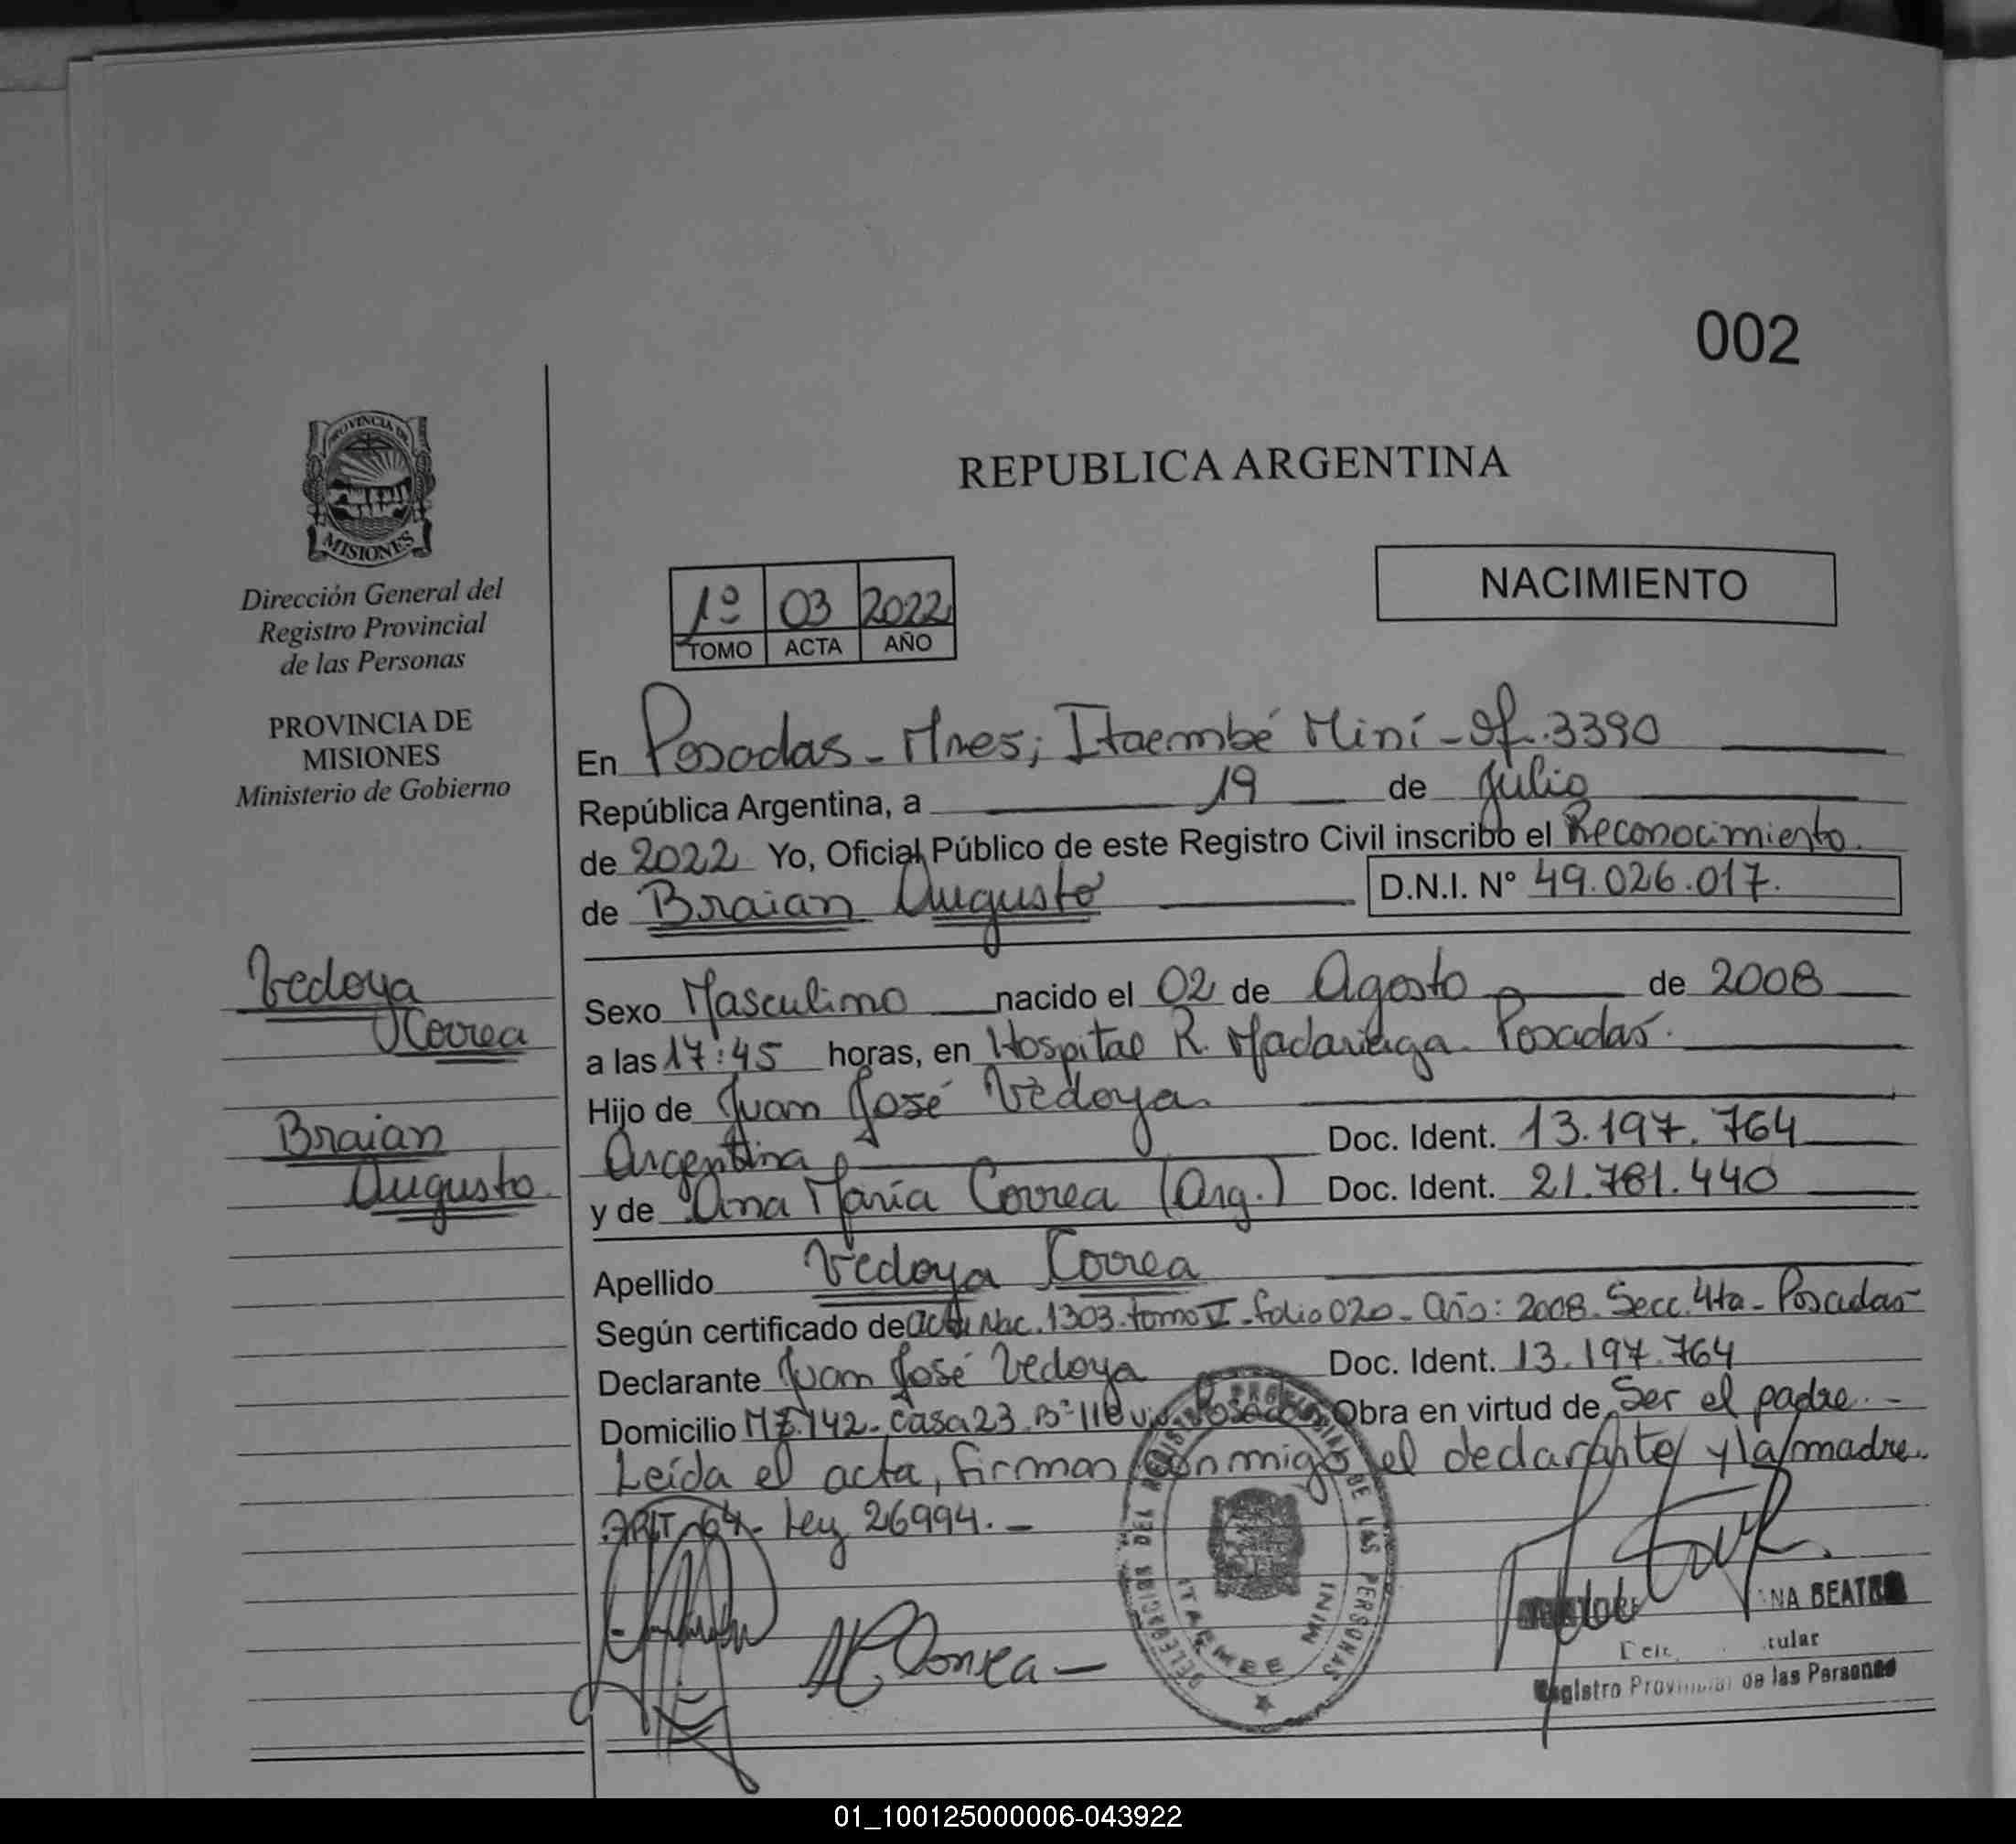 002
PROVINCIA DE
MISIONES
Dirección General del
Registro Provincial
de las Personas
PROVINCIA DE
MISIONES
Ministerio de Gobierno
Vedoya
Correa
Braian
Augusto
REPUBLICA ARGENTINA
NACIMIENTO
1º 03 2022
TOMO ACTA AÑO
En Posadas - Mnes; Itaembé Miní - Of. 3390
República Argentina, a 19 de Julio
de 2022 Yo, Oficial Público de este Registro Civil inscribo el Reconocimiento.
de Braian Augusto D.N.I. Nº 49.026.017.
Sexo Masculino nacido el 02 de Agosto de 2008
a las 17:45 horas, en Hospital R. Madariaga - Posadas.
Hijo de Juan José Vedoya
Argentina Doc. Ident. 13.197.764
y de Ana María Correa (Arg.) Doc. Ident. 21.781.440
Apellido Vedoya Correa
Según certificado de Acta Nac. 1303. tomo VI - folio 020 - Año: 2008. Secc. 4ta - Posadas
Declarante Juan José Vedoya Doc. Ident. 13.197.764
Domicilio Mz. 142 - Casa 23 Bº 118 viv. Posadas Obra en virtud de Ser el padre. -
Leída el acta, firman conmigo el declarante y la madre.
ART. 64 - Ley 26994. -
Correa -
DELEGACION DEL REGISTRO PROVINCIAL DE LAS PERSONAS
ITAEMBE MINI
BEATRIZ
Registro Provincial de las Personas
01_100125000006-043922